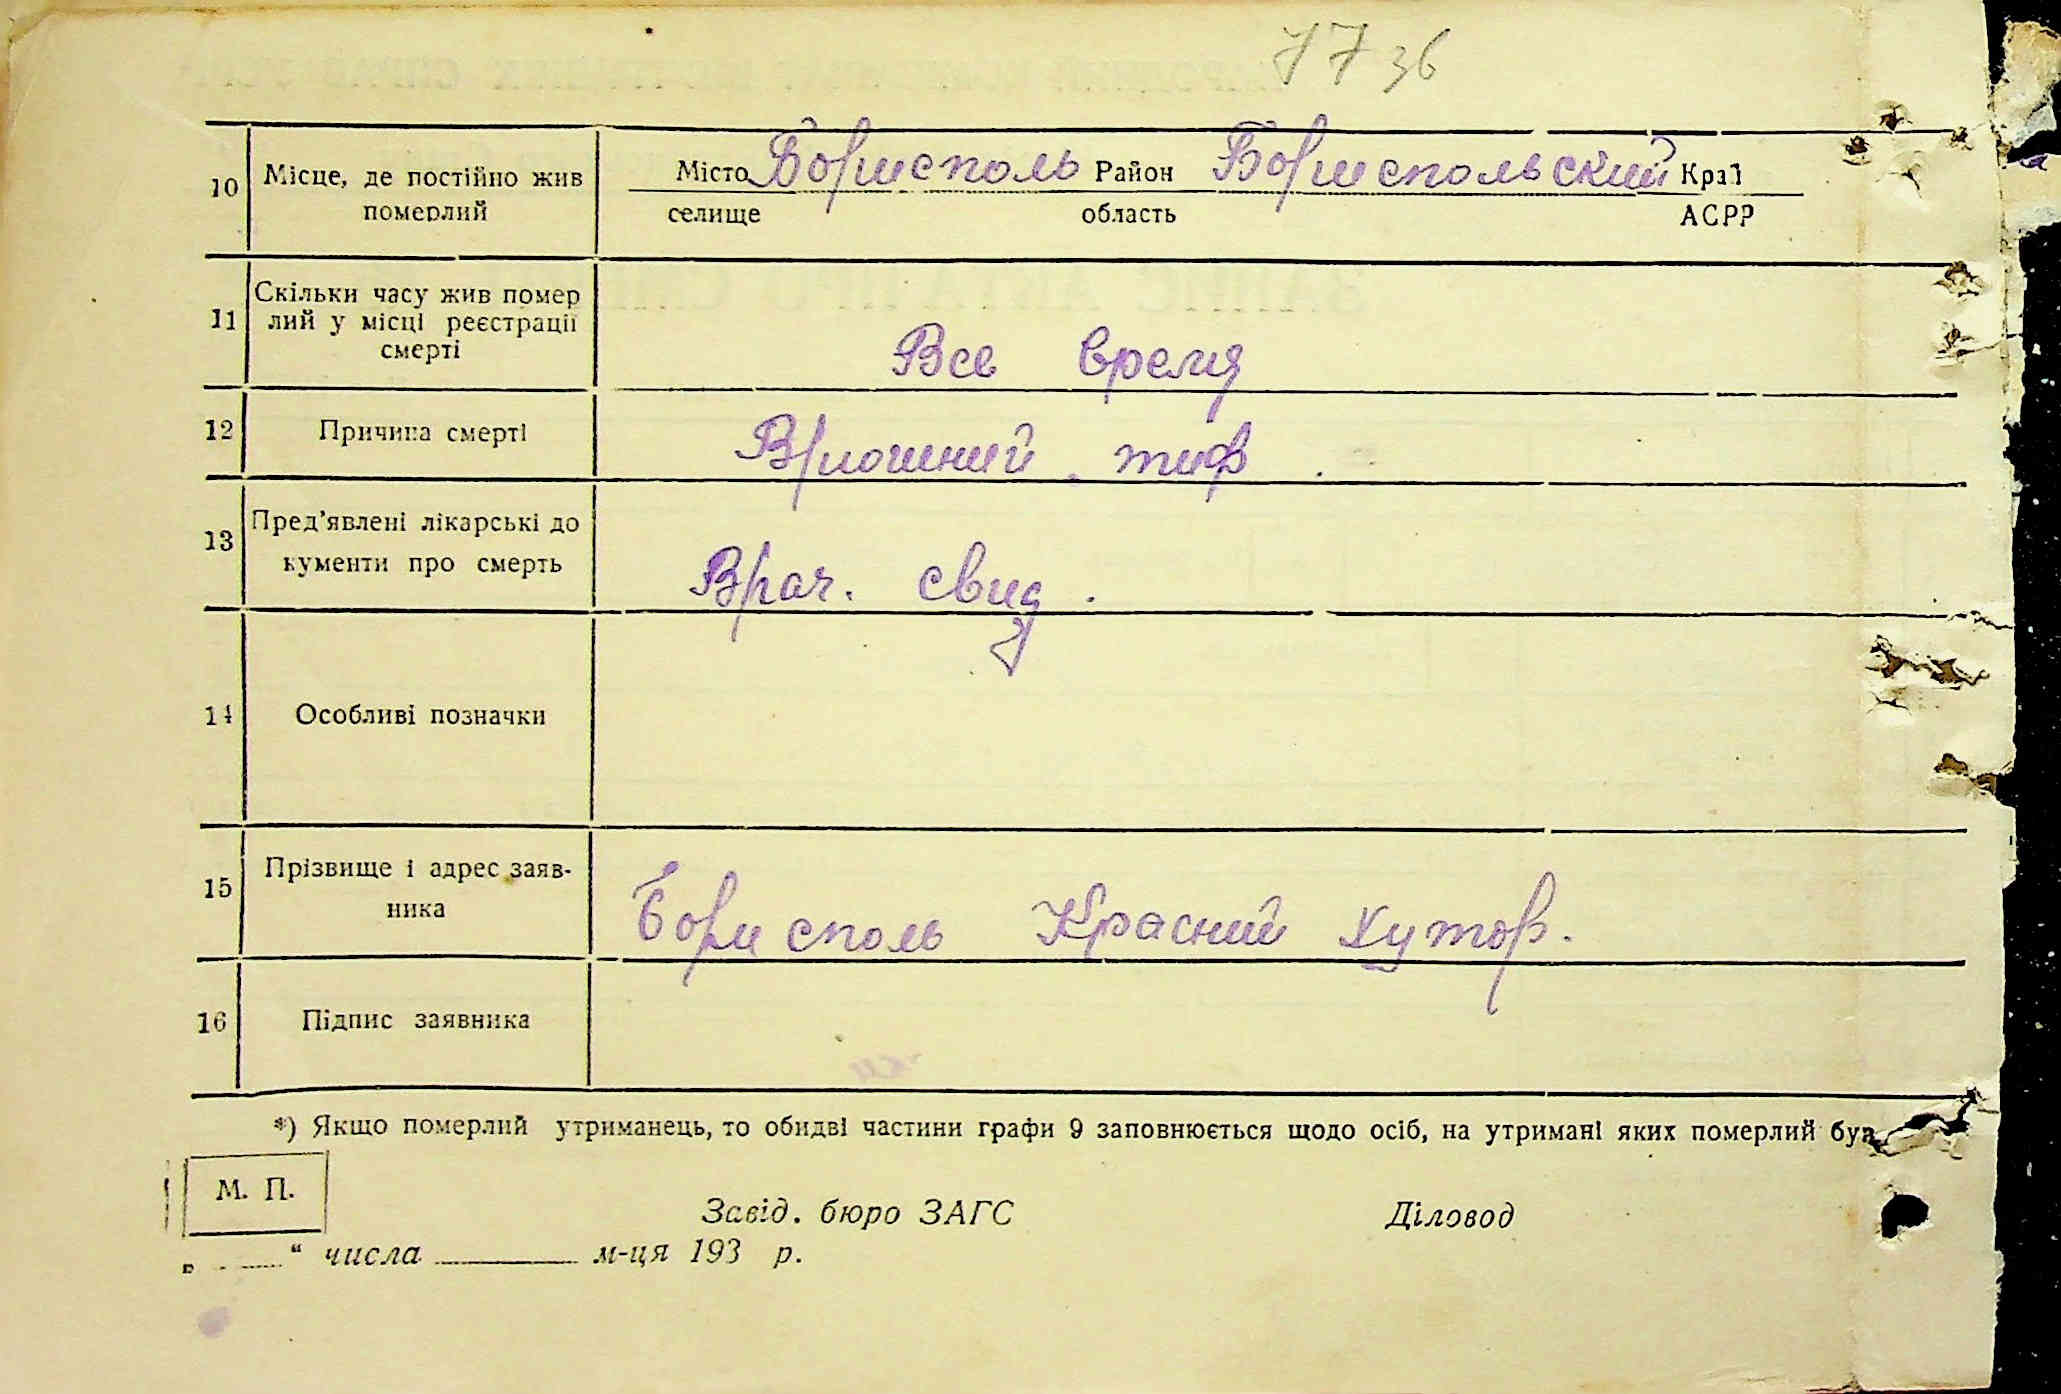 77 зв
10 Місце, де постійно жив Місто Борисполь Район Бориспольский Край
померлий селище область АСРР
11 Скільки часу жив помер
лий у місці реєстрації
смерті Все время
12 Причина смерті Брюшний тиф.
13 Пред’явлені лікарські до
кументи про смерть Врач. свид.
14 Особливі позначки
15 Прізвище і адрес заяв-
ника Борисполь Красний Хутор.
16 Підпис заявника
*) Якщо померлий утриманець, то обидві частини графи 9 заповнюється щодо осіб, на утримані яких померлий був
М. П.
Завід. бюро ЗАГС Діловод
„ “ числа м-ця 193 р.